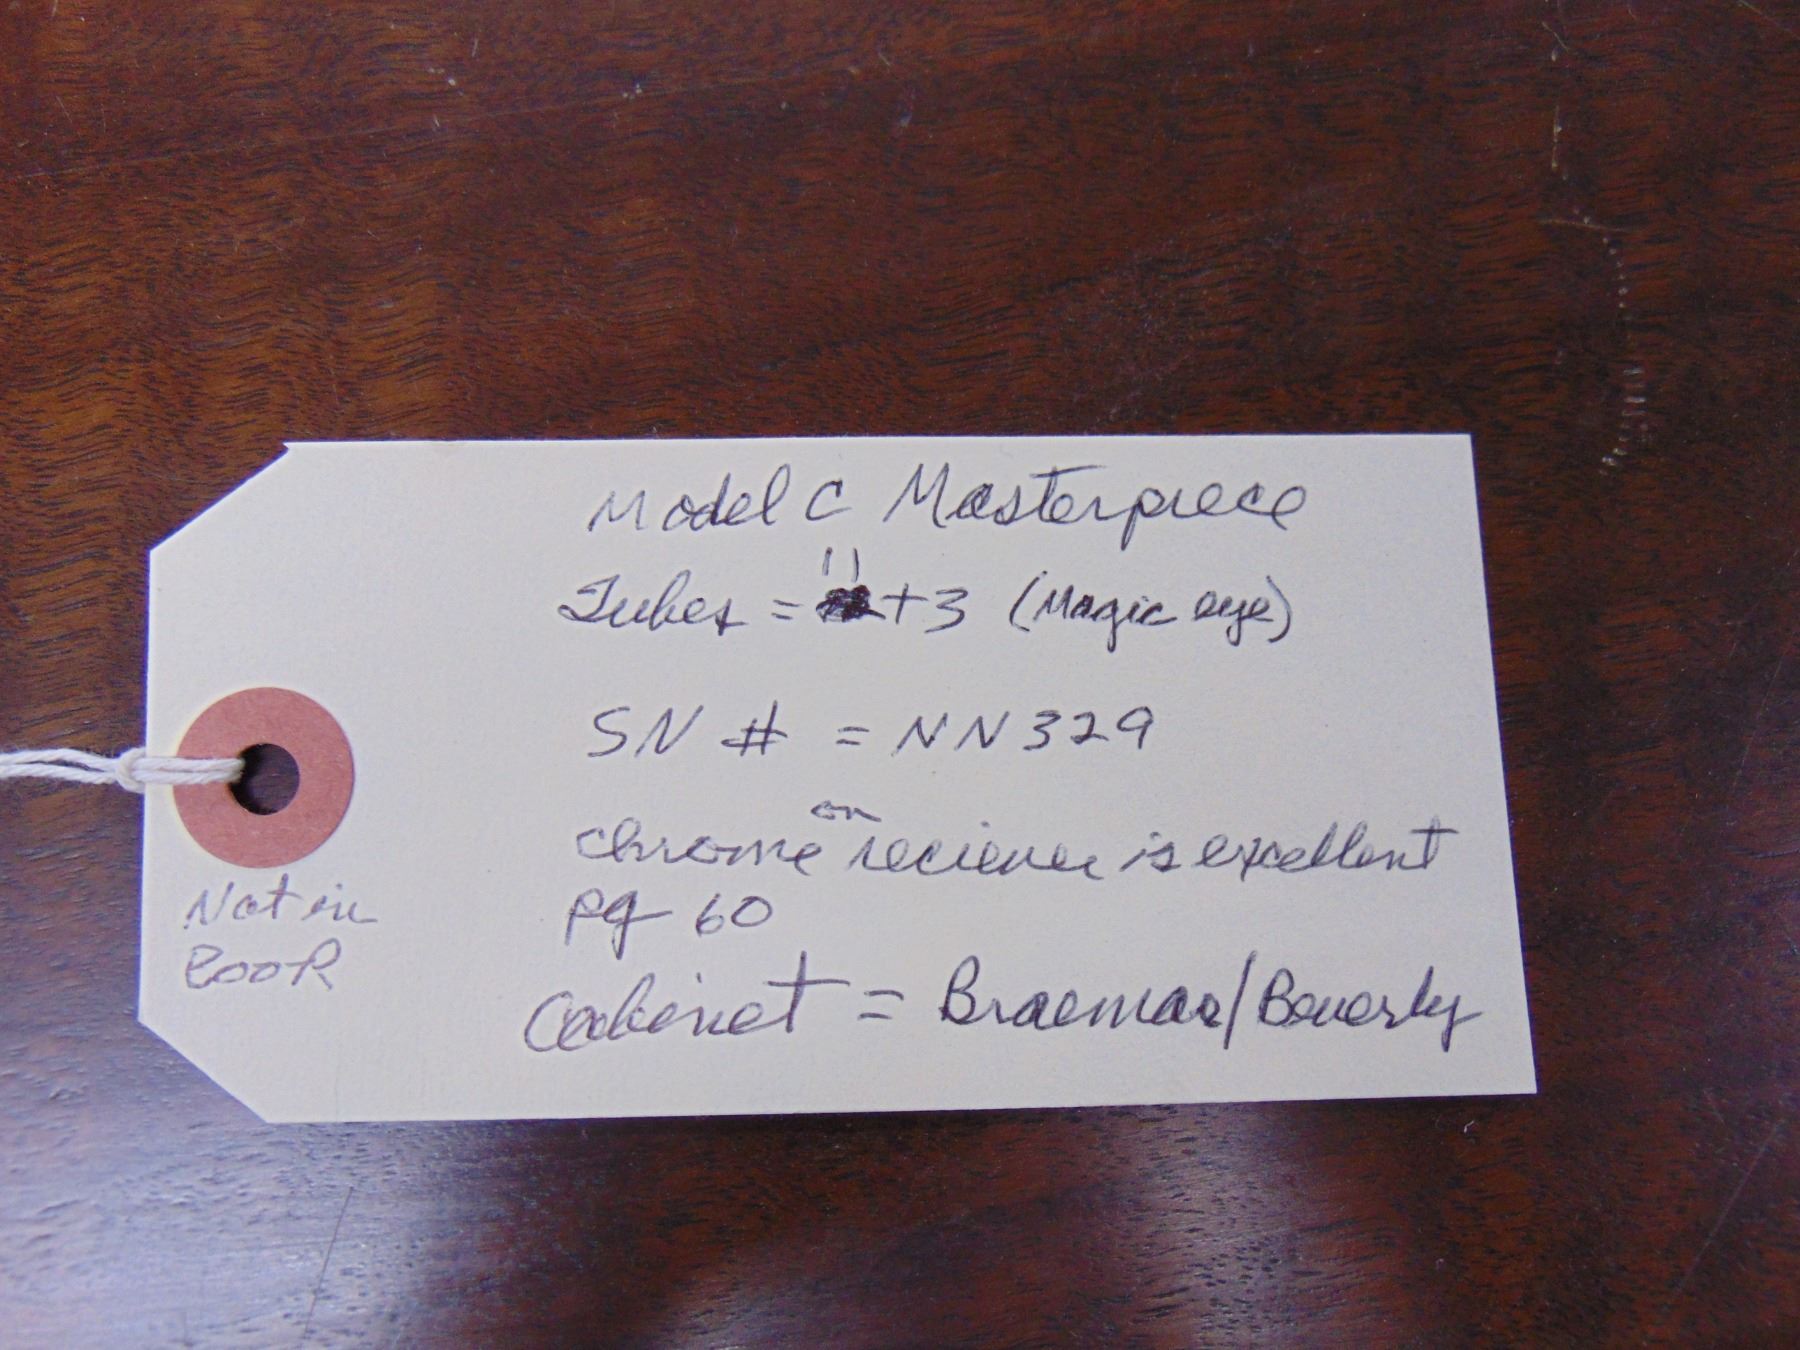 Model C Masterpiece
Tubes = 11 +3 (Magic eye)
SN # = NN329
chrome on reciever is excellent
pg 60
Cabinet = Braemar/Beverly
Not in
BOOK